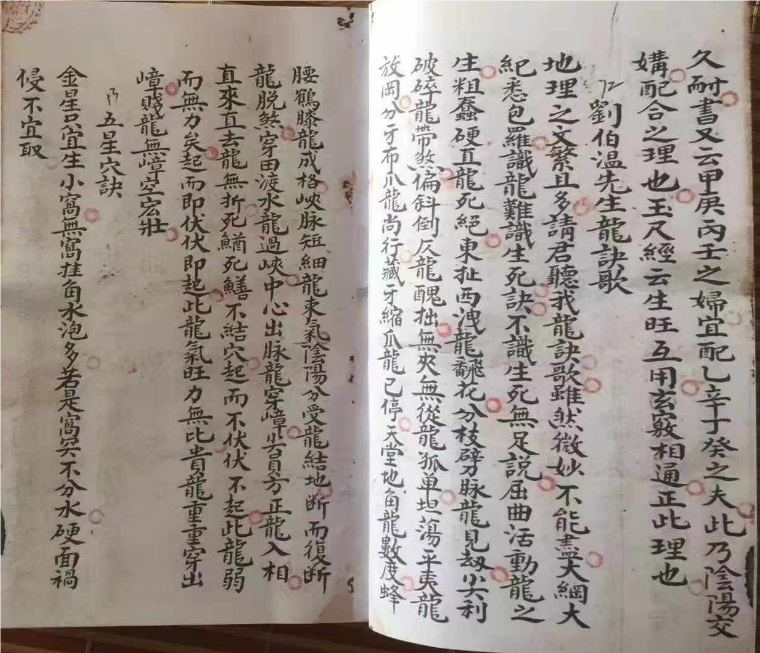 久耐書又云甲庚丙壬之婦宜配乙辛丁癸之夫此乃陰陽交
媾配合之理也玉尺經云生旺互用玄竅相通正此理也
劉伯温先生龍訣歌
地理之文繁且多請君聽我龍訣歌雖然微妙不能盡大綱大
紀悉包羅識龍難識生死訣不識生死無足説屈曲活動龍之
生粗蠢硬直龍死絕東扯西洩龍飜花分枝劈脉龍見劫尖利
破碎龍帶煞偏斜倒仄龍醜拙無夾無從龍孤单坦蕩平夷龍
放岡分牙布爪龍尚行藏牙縮爪龍已停天堂地角龍數度蜂
腰鶴膝龍成格峽脉短細龍束氣陰陽分受龍結地断而復断
龍脱煞穿田渡水龍過峽中心出脉龍穿嶂端方正龍入相
直來直去龍無折死鰌死鱔不結穴起而不伏伏不起此龍弱
而無力矣起而即伏伏即起此龍氣旺力無比貴龍重重穿出
嶂賤龍無嶂空宏壯
五星穴訣
金星只宜生小窩無窩挂角水泡多若是窩不分水硬面禍
侵不宜取